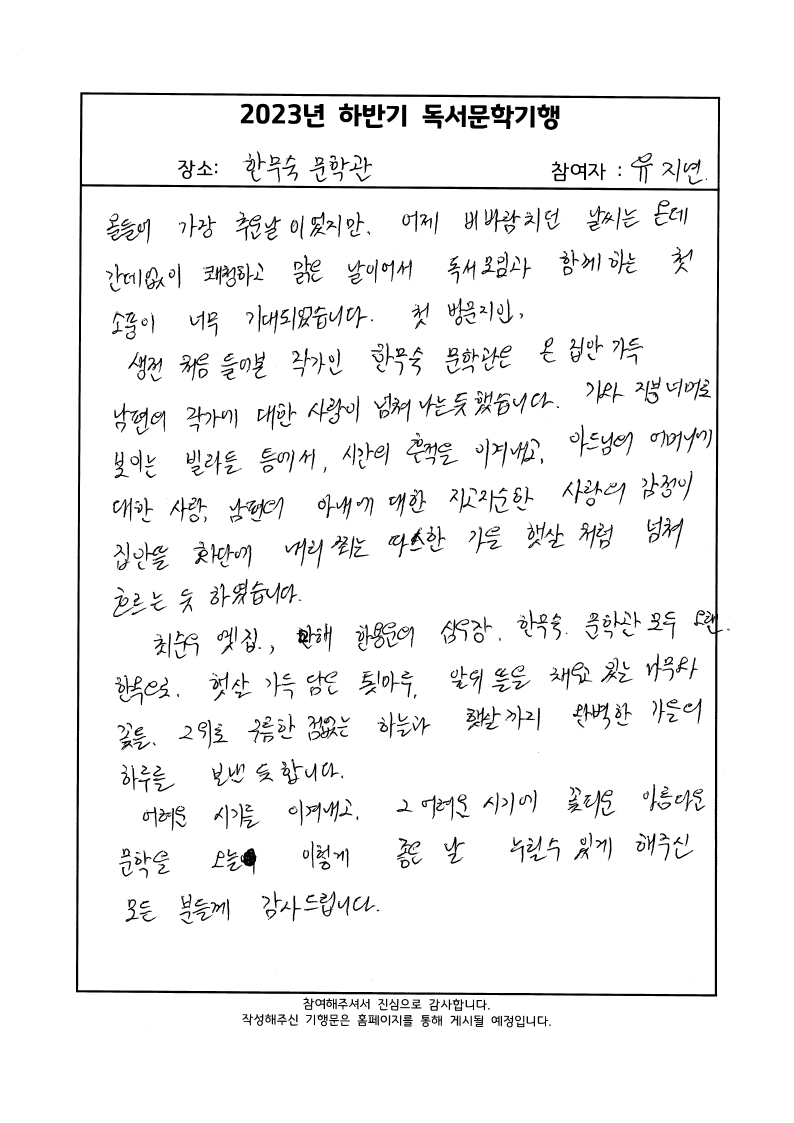 2023년 하반기 독서문학기행
장소: 한무숙 문학관 참여자 : 유지연.
올들어 가장 추운날이었지만, 어제 비바람치던 날씨는 온데
간데없이 쾌청하고 맑은 날이어서 독서모임과 함께하는 첫
소풍이 너무 기대되었습니다. 첫 방문지인,
생전 처음 들어본 작가인 한무숙 문학관은 온 집안 가득
남편의 작가에 대한 사랑이 넘쳐나는듯했습니다. 기와 지붕너머로
보이는 빌라들 틈에서, 시간의 흔적을 이겨내고, 아드님의 어머니에
대한 사랑, 남편의 아내에 대한 지고지순한 사랑의 감정이
집안뜰 화단에 내리쬐는 따스한 가을 햇살처럼 넘쳐
흐르는 듯 하였습니다.
최순우 옛집, 만해 한용운의 심우장, 한무숙 문학관 모두 오랜
한옥으로, 햇살 가득 담은 툇마루, 앞뒤 뜰을 채우고 있는 나무와
꽃들, 그위로 구름한점없는 하늘과 햇살까지 완벽한 가을의
하루를 보낸 듯합니다.
어려운 시기를 이겨내고, 그 어려운 시기에 꽃피운 아름다운
문학을 오늘 이렇게 좋은 날 누릴수 있게 해주신
모든 분들께 감사드립니다.
참여해주셔서 진심으로 감사합니다.
작성해주신 기행문은 홈페이지를 통해 게시될 예정입니다.